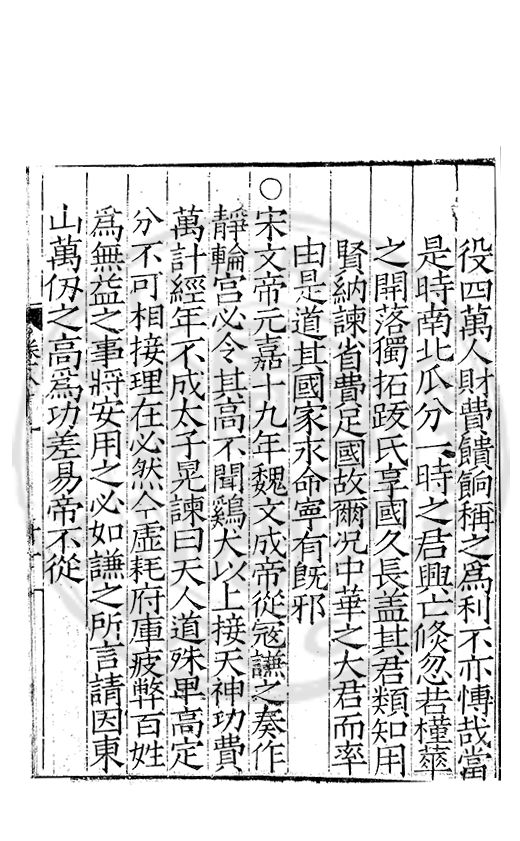 役四萬人財費饋餉稱之爲利不亦慱哉當
是時南北瓜分一時之君興亡倐忽若槿華
之開落獨拓跋氏享國久長盖其君類知用
賢納諫省費足國故爾况中華之大君而率
由是道其國家永命寧有旣邪
○宋文帝元嘉十九年魏文成帝從寇謙之奏作
靜輪宫必令其高不聞鷄犬以上接天神功費
萬計經年不成太子晃諫曰天人道殊卑高定
分不可相接理在必然今虛耗府庫疲弊百姓
爲無益之事將安用之必如謙之所言請因東
山萬仭之高爲功差易帝不從